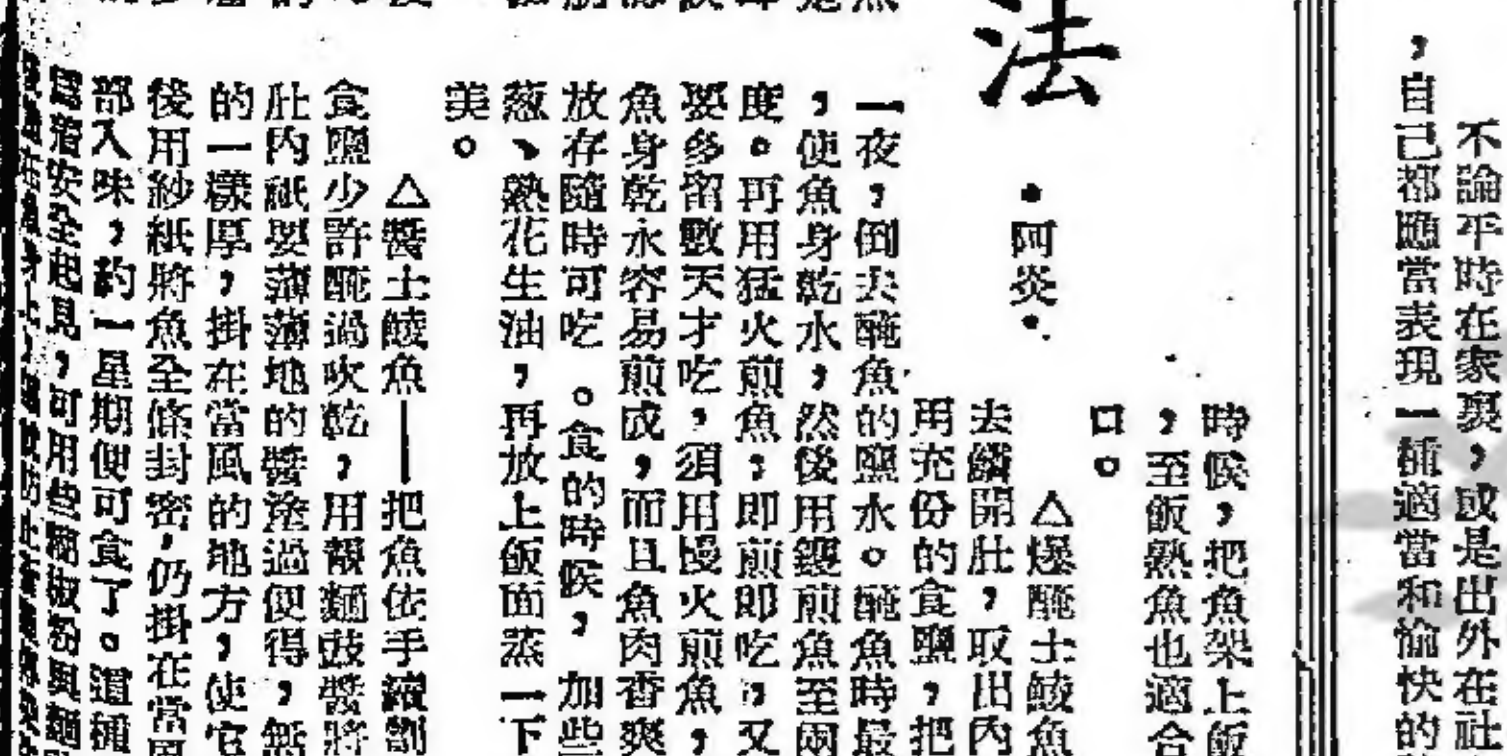 不論平時在家裏，或是出外在社
，自己都應當表現一種適當和愉快的
時候，把魚架上飯
，至飯熟魚也適合
口。
法
・阿炎・
△爆醃士鯪魚
去鱗開肚，取出內
用充份的食鹽，把
一夜，倒去醃魚的鹽水。醃魚時最
，使魚身乾水，然後用鑊煎魚至兩
度。再用猛火煎魚；即煎即吃；又
要多留數天才吃，須用慢火煎魚，
魚身乾永容易煎成，而且魚肉香爽
放存隨時可吃。食的時候，加些
葱、熟花生油，再放上飯面蒸一下
美。
△醬士鯪魚——把魚依手續劏
食鹽少許醃過吹乾，用靚麵豉醬將
肚內紙要薄薄地的醬塗過便得，無
的一樣厚，掛在當風的地方，使它
後用紗紙將魚全條封密，仍掛在當風
部入味，約一星期便可食了。這種
爲着安全起見，可用些胡椒粉與麵